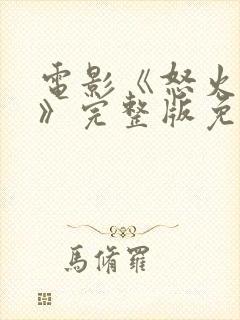 電影《怒火
》完整版免
馬脩羅